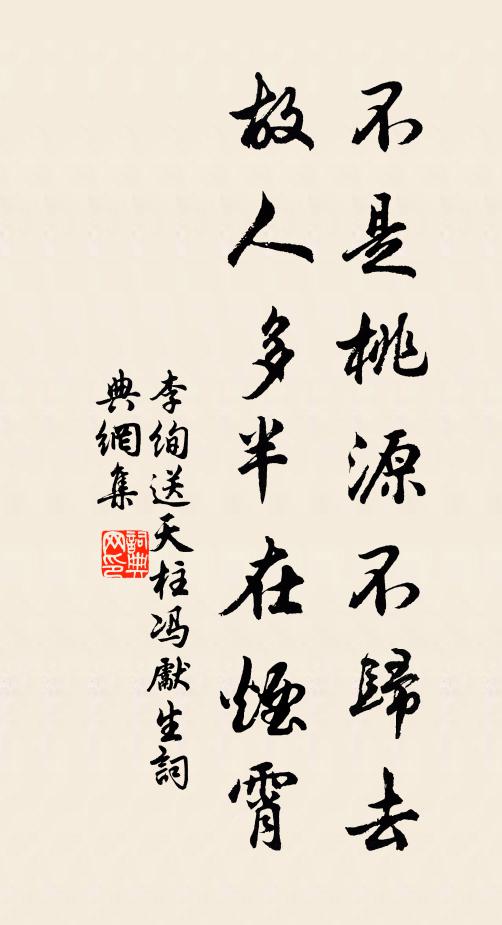 不是桃源不歸去
故人多半在煙霄
李絢送天柱冯獻生詞
典網集
詞典
网印